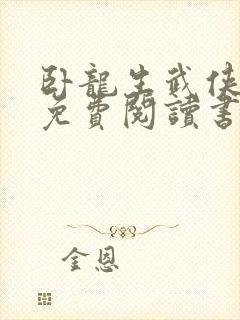 卧龍生武俠
免費閱讀書
金恩